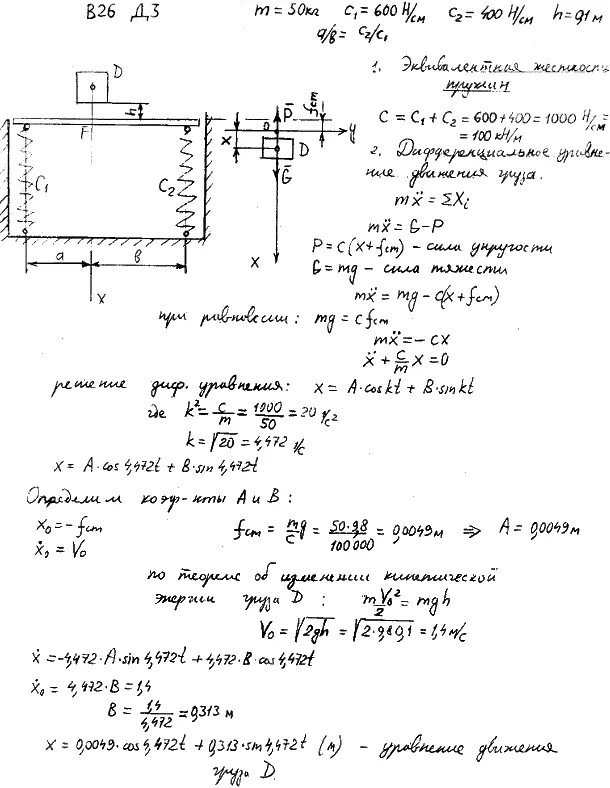 В26 Д.3 m = 50кг C₁ = 600 Н/см C₂ = 400 Н/см h = 0,1 м
a/b = C₂/C₁
1. Эквивалентная жесткость
пружин
C = C₁ + C₂ = 600 + 400 = 1000 Н/см =
= 100 кН/м
2. Дифференциальное уравне-
ние движения груза.
mẍ = ΣXᵢ
mẍ = G - P
P = C(x + fст) - сила упругости
G = mg - сила тяжести
mẍ = mg - c(x + fст)
D
h
F
C₁
C₂
a
в
x
P̄
fст
0
y
x
D
Ḡ
x
при равновесии: mg = c fст
mẍ = - cx
ẍ + c/m x = 0
решение диф. уравнения: x = A·cos kt + B·sin kt
где k² = c/m = 1000/50 = 20 1/с²
k = √20 = 4,472 1/с
x = A·cos 4,472t + B·sin 4,472t
Определим коэф-нты A и B:
x₀ = - fст fст = mg/C = 50·9,8/100000 = 0,0049 м ⇒ A = 0,0049 м
ẋ₀ = V₀
по теореме об изменении кинетической
энергии груза D: mV₀²/2 = mgh
V₀ = √2gh = √2·9,8·0,1 = 1,4 м/с
ẋ = -4,472·A·sin 4,472t + 4,472·B·cos 4,472t
ẋ₀ = 4,472·B = 1,4
B = 1,4/4,472 = 0,313 м
x = 0,0049·cos 4,472t + 0,313·sin 4,472t (м) - уравнение движения
груза D.